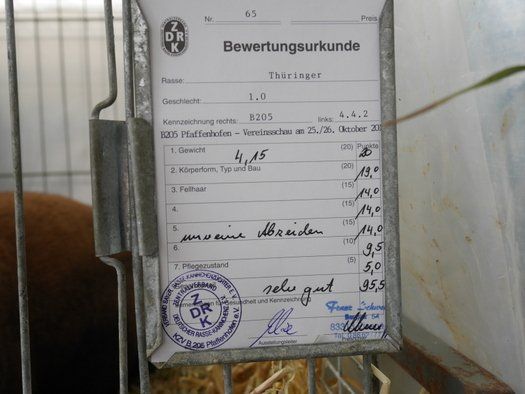 Nr. 65 Preis
ZDRK
Bewertungsurkunde
Rasse: Thüringer
Geschlecht: 1.0
Kennzeichnung rechts: B205 links: 4.4.2
B205 Pfaffenhofen - Vereinsschau am 25./26. Oktober 201
Punkte
1. Gewicht 4,15 (20) 20
2. Körperform, Typ und Bau (20) 19,0
3. Fellhaar (15) 14,0
4. (15) 14,0
5. unreine Abzeichen (15) 14,0
6. (10) 9,5
7. Pflegezustand (5) 5,0
sehr gut 95,5
für Gesundheit und Kennzeichnung
ZENTRALVERBAND
DEUTSCHER RASSE-KANINCHENZÜCHTER
ZDRK
KZV B 205 Pfaffenhofen e.V.
Ausstellungsleiter